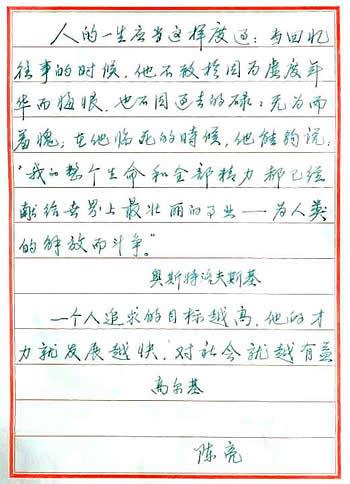 人的一生应当这样度过：当回忆
往事的时候，他不致于因为虚度年
华而悔恨，也不因过去的碌碌无为而
羞愧；在他临死的時候，他能够说：
“我的整个生命和全部精力都已经
献给世界上最壮丽的事业——为人类
的解放而斗争。”
奥斯特洛夫斯基
一个人追求的目标越高，他的才
力就发展越快，对社会就越有益
高尔基
陈亮